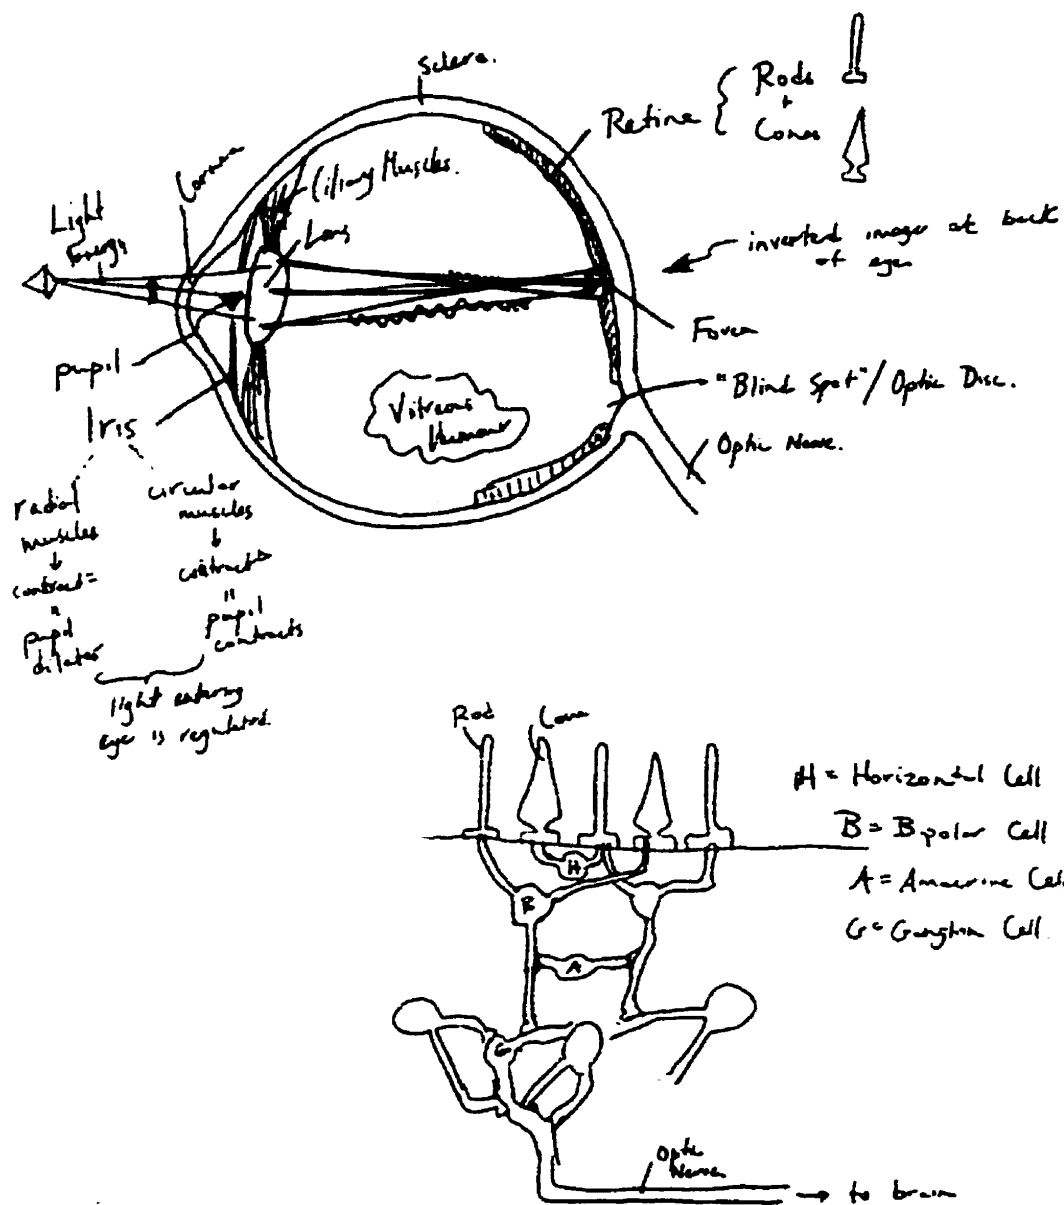 Sclera.
Retina
Rods
+
Cones
Cornea
Ciliary Muscles.
Light
Energy
Lens
inverted image at back
of eye
Fovea
pupil
"Blind Spot"/Optic Disc.
Vitreous
Humour
Iris
Optic Nerve.
radial
muscles
contract =
pupil
dilates
circular
muscles
contract
=
pupil
contracts
light entering
eye is regulated.
Rod
Cone
H = Horizontal Cell
B = Bipolar Cell
A = Amacrine Cell
G = Ganglion Cell
H
B
A
G
Optic
Nerve
→ to brain